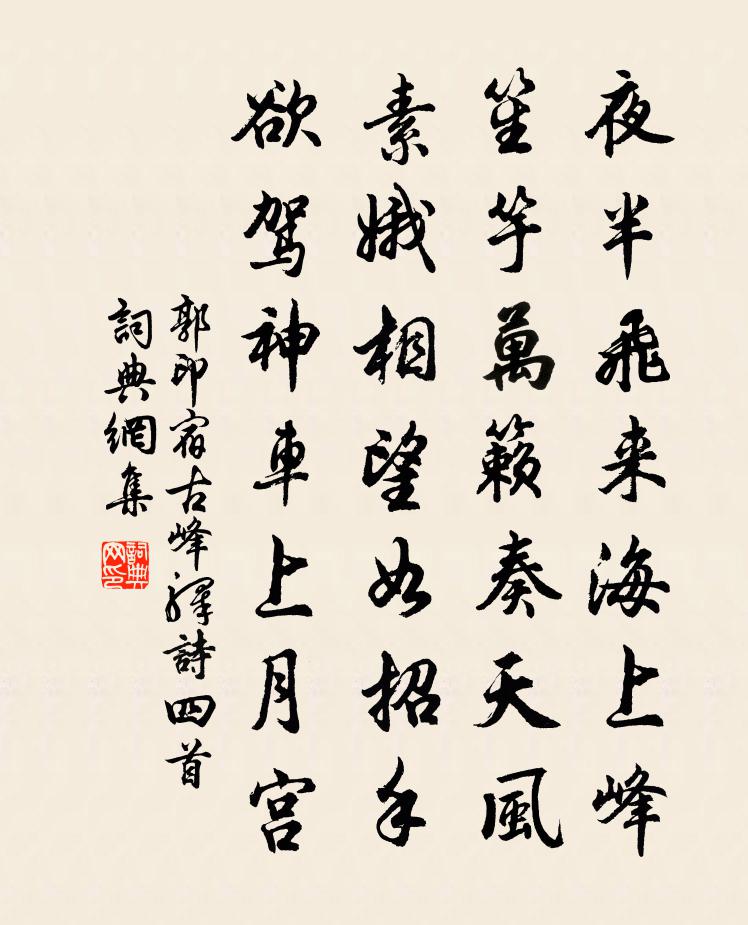 夜半飛来海上峰
笙竽萬籟奏天風
素娥相望如招手
欲駕神車上月宮
郭印宿古峰驛詩四首
詞典網集
詞典網印